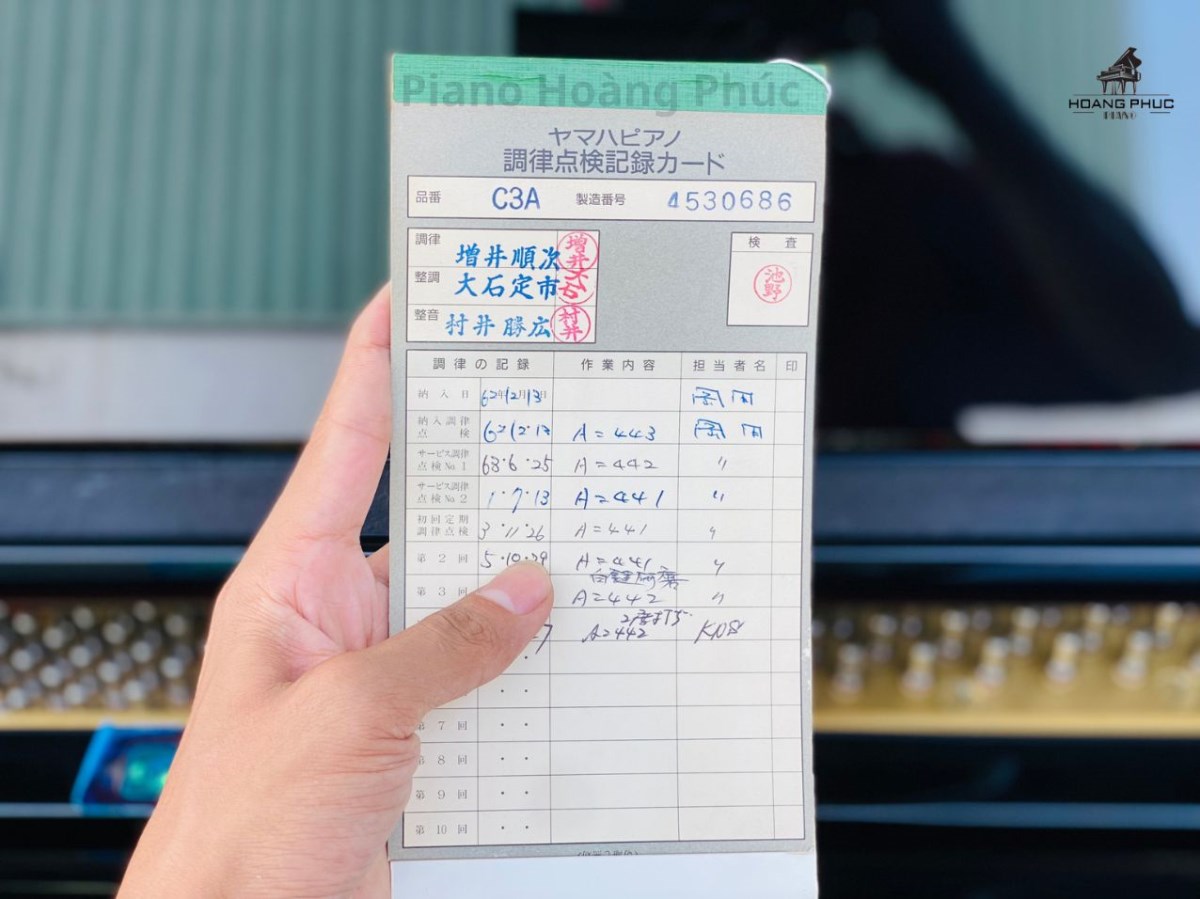 Piano Hoàng Phúc
HOANG PHUC
PIANO
ヤマハピアノ
調律点検記録カード
品番 C3A 製造番号 4530686
調律 増井順次 増井
整調 大石定市 大石
整音 村井勝広 村井
検査
池野
調律の記録 作業内容 担当者名 印
納入日 62年12月13日
納入調律点検 62・12・13 A=443
サービス調律点検No.1 63・6・25 A=442 〃
サービス調律点検No.2 1・7・13 A=441 〃
初回定期調律点検 3・11・26 A=441 〃
第2回 5・10・29 A=441 〃
第3回 A=442 〃
7 A=442
第7回 ・ ・
第8回 ・ ・
第9回 ・ ・
第10回 ・ ・